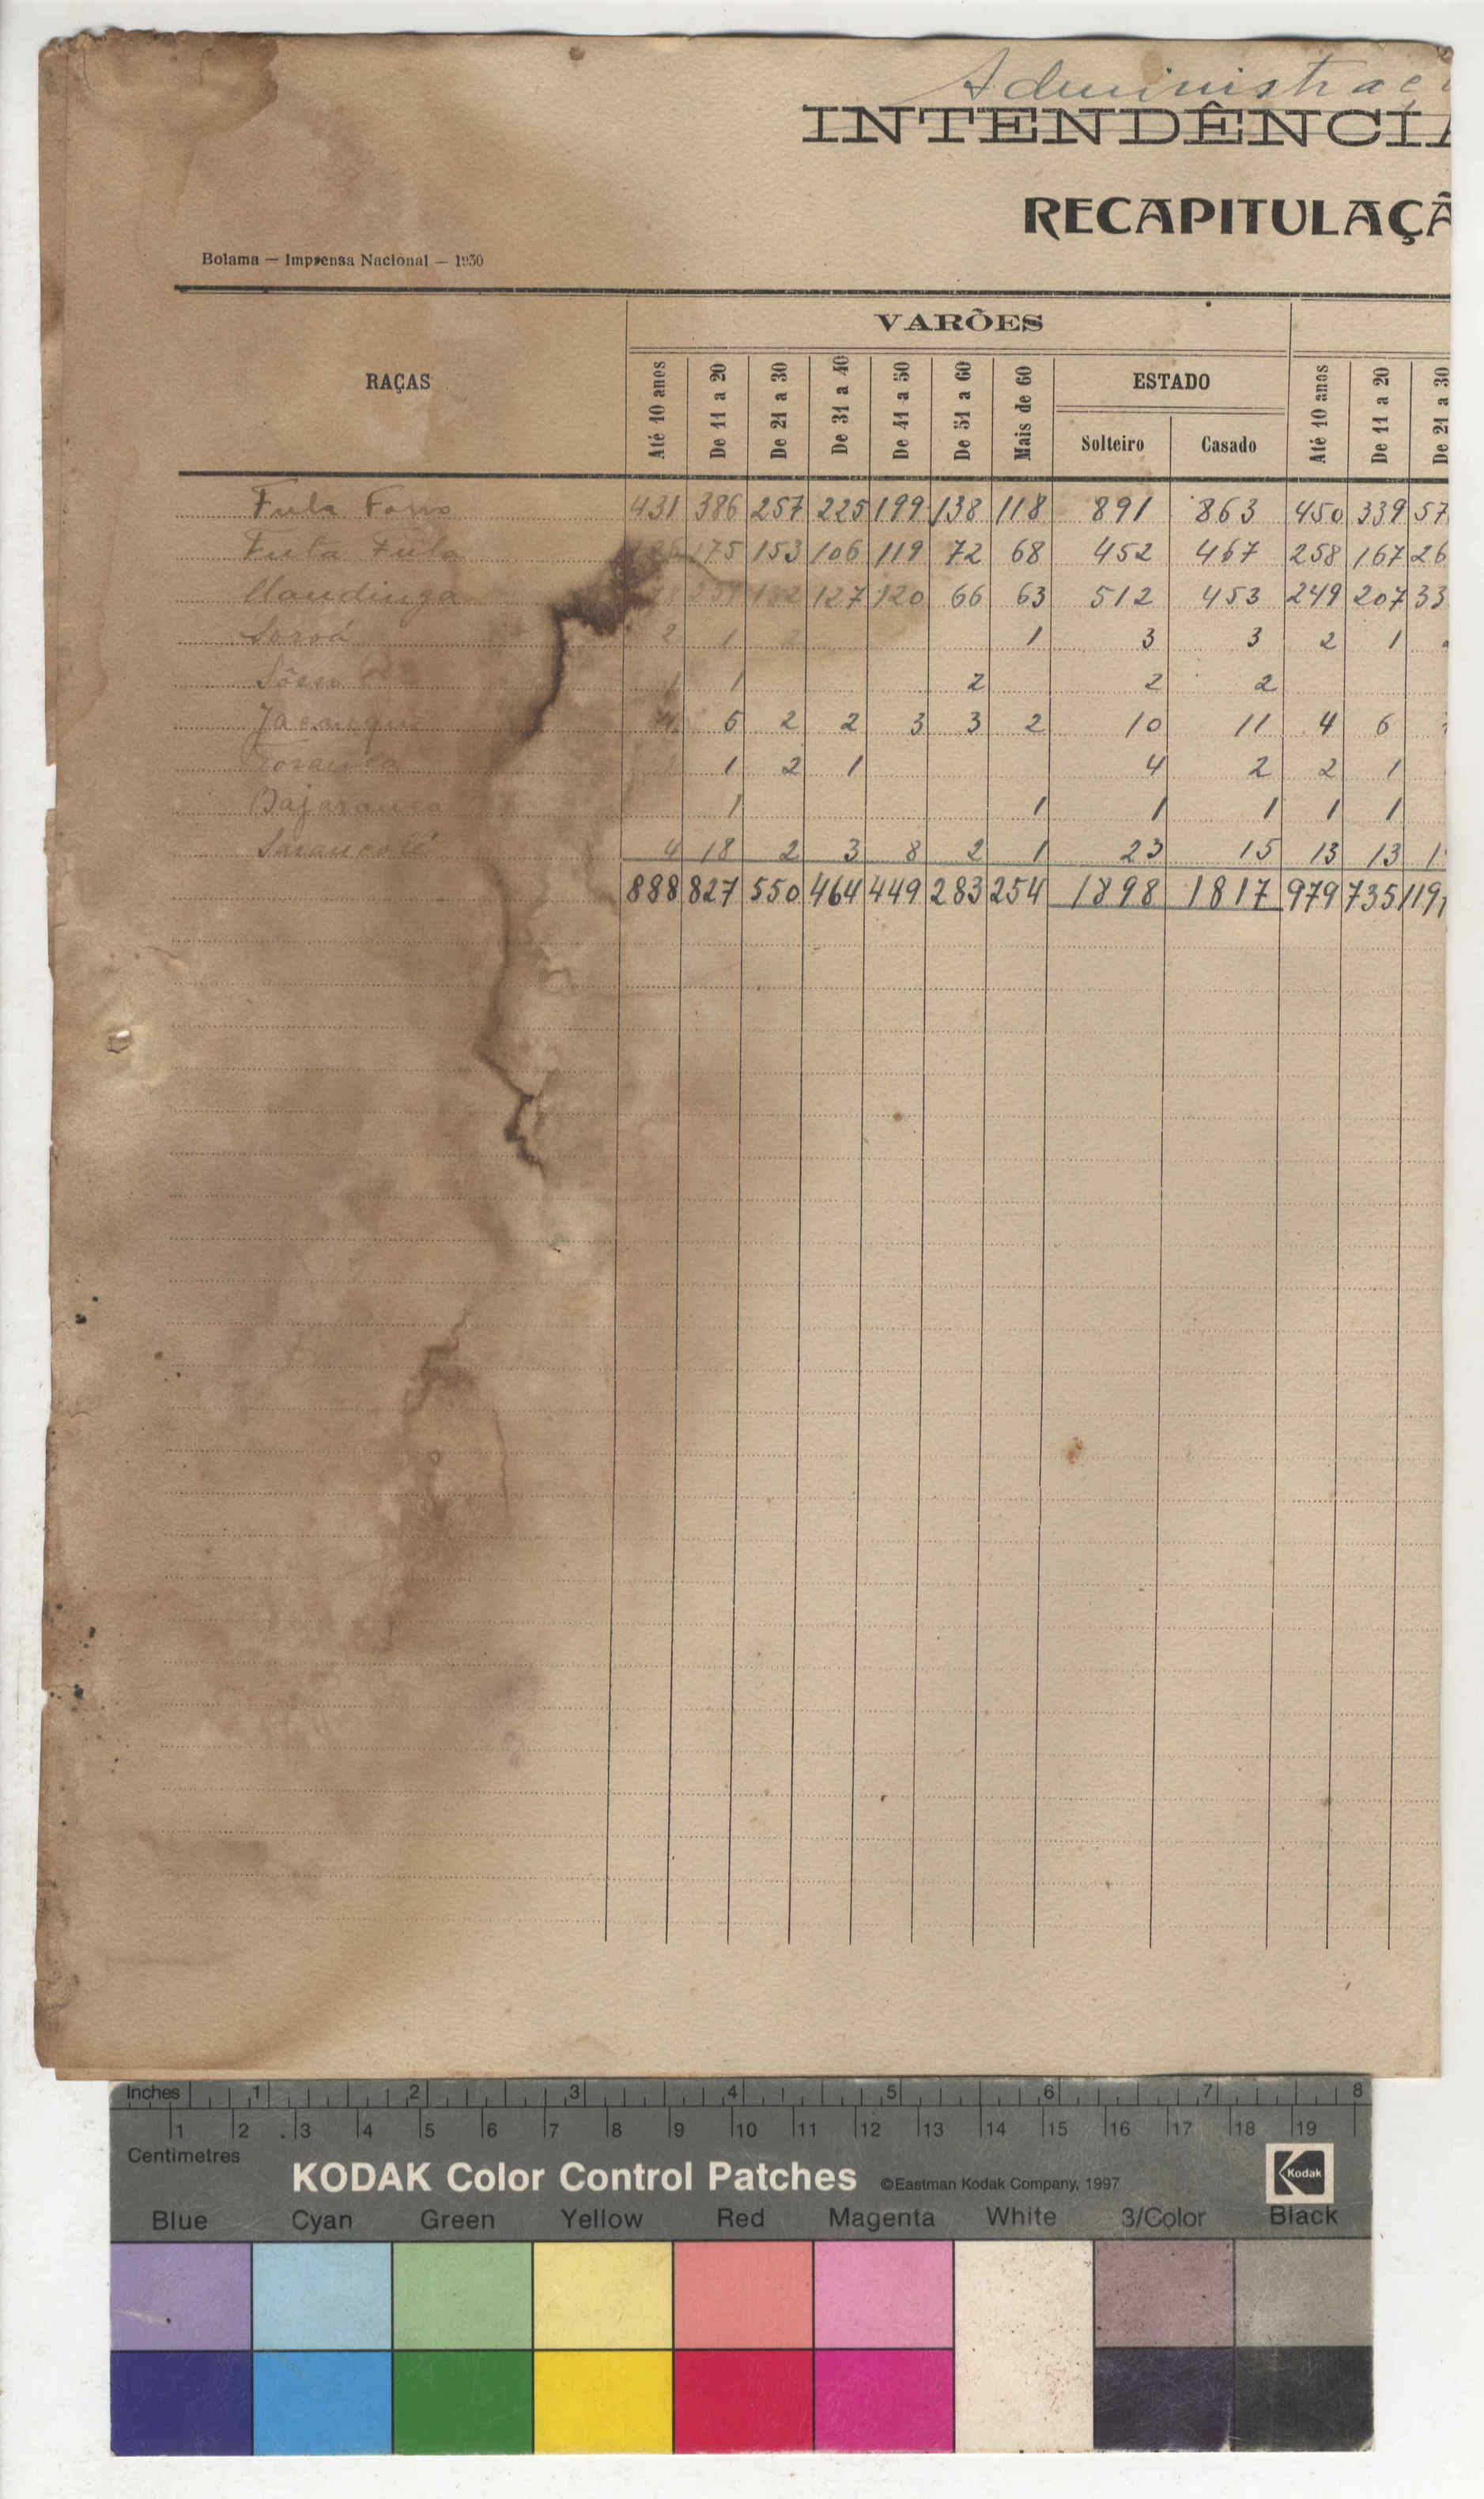 Administraç
INTENDÊNCIA
RECAPITULAÇÃ
Bolama — Imprensa Nacional — 1930
RAÇAS
VARÕES
Até 10 anos De 11 a 20 De 21 a 30 De 31 a 40 De 41 a 50 De 51 a 60 Mais de 60 ESTADO Até 10 anos De 11 a 20 De 21 a 30
Solteiro Casado
Fula Forro 431 386 257 225 199 138 118 891 863 450 339 57
Futa Fula 175 153 106 119 72 68 452 467 258 167 26
Mandinga 127 120 66 63 512 453 249 207 33
2 1 1 3 3 2 1
1 1 2 2 2
4 5 2 2 3 3 2 10 11 4 6
1 2 1 4 2 2 1
Bajaranca 1 1 1 1 1 1
Saracolé 4 18 2 3 8 2 1 23 15 13 13 1
888 827 550 464 449 283 254 1898 1817 979 735 119
Inches 1 2 3 4 5 6 7 8
1 2 3 4 5 6 7 8 9 10 11 12 13 14 15 16 17 18 19
Centimetres
KODAK Color Control Patches ©Eastman Kodak Company, 1997 Kodak
Blue Cyan Green Yellow Red Magenta White 3/Color Black